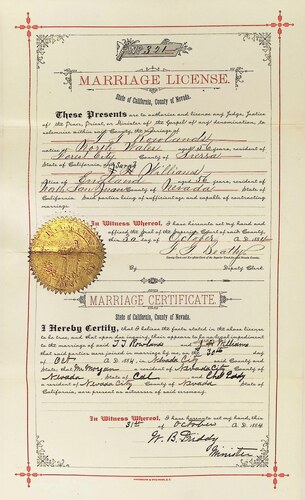 321
MARRIAGE LICENSE.
State of California, County of Nevada.
These Presents are to authorize and license any Judge, Justice
of the Peace, Priest, or Minister of the Gospel of any denomination, to
solemnize within said County, the marriage of
Rowlands
native of North Wales aged 36 years, resident of
Forest City County of Sierra
and Sarah
J. H. Williams
England aged 36 years, resident of
North San Juan County of Nevada
State of California. Said parties being of sufficient age and capable of contracting
marriage.
In Witness Whereof, I have hereunto set my hand and
affixed the Seal of the Superior Court of said County,
this 22 October A. D. 1884
J. G. Beatty
Deputy Clerk.
MARRIAGE CERTIFICATE.
State of California, County of Nevada.
I Hereby Certify, that I believe the facts stated in the above license
to be true, and that upon due inquiry there appears to be no legal impediment
to the marriage of said Rowland and Williams
that said parties were joined in marriage by me, on the 30th day
of Oct A. D. 1884, in Nevada City said County and
State; that Mr Morgan a resident of Nevada City County of
Nevada State of Cal and Eddy
a resident of Nevada City County of Nevada State of
California, were present as witnesses of said ceremony.
In Witness Whereof, I have hereunto set my hand, this
31st of October A. D. 1884
W. B. Priddy
Minister